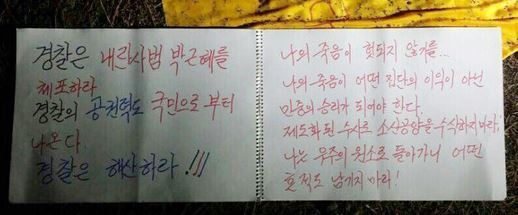 경찰은 내란사범 박근혜를
체포하라
경찰의 공권력도 국민으로 부터
나온다.
경찰은 해산하라!!!
나의 죽음이 헛되지 않기를...
나의 죽음이 어떤 집단의 이익이 아닌
민중의 승리가 되어야 한다.
제도화된 수사로 소신공양을 수식하지 마라,
나는 우주의 원소로 돌아가니 어떤
흔적도 남기지 마라!